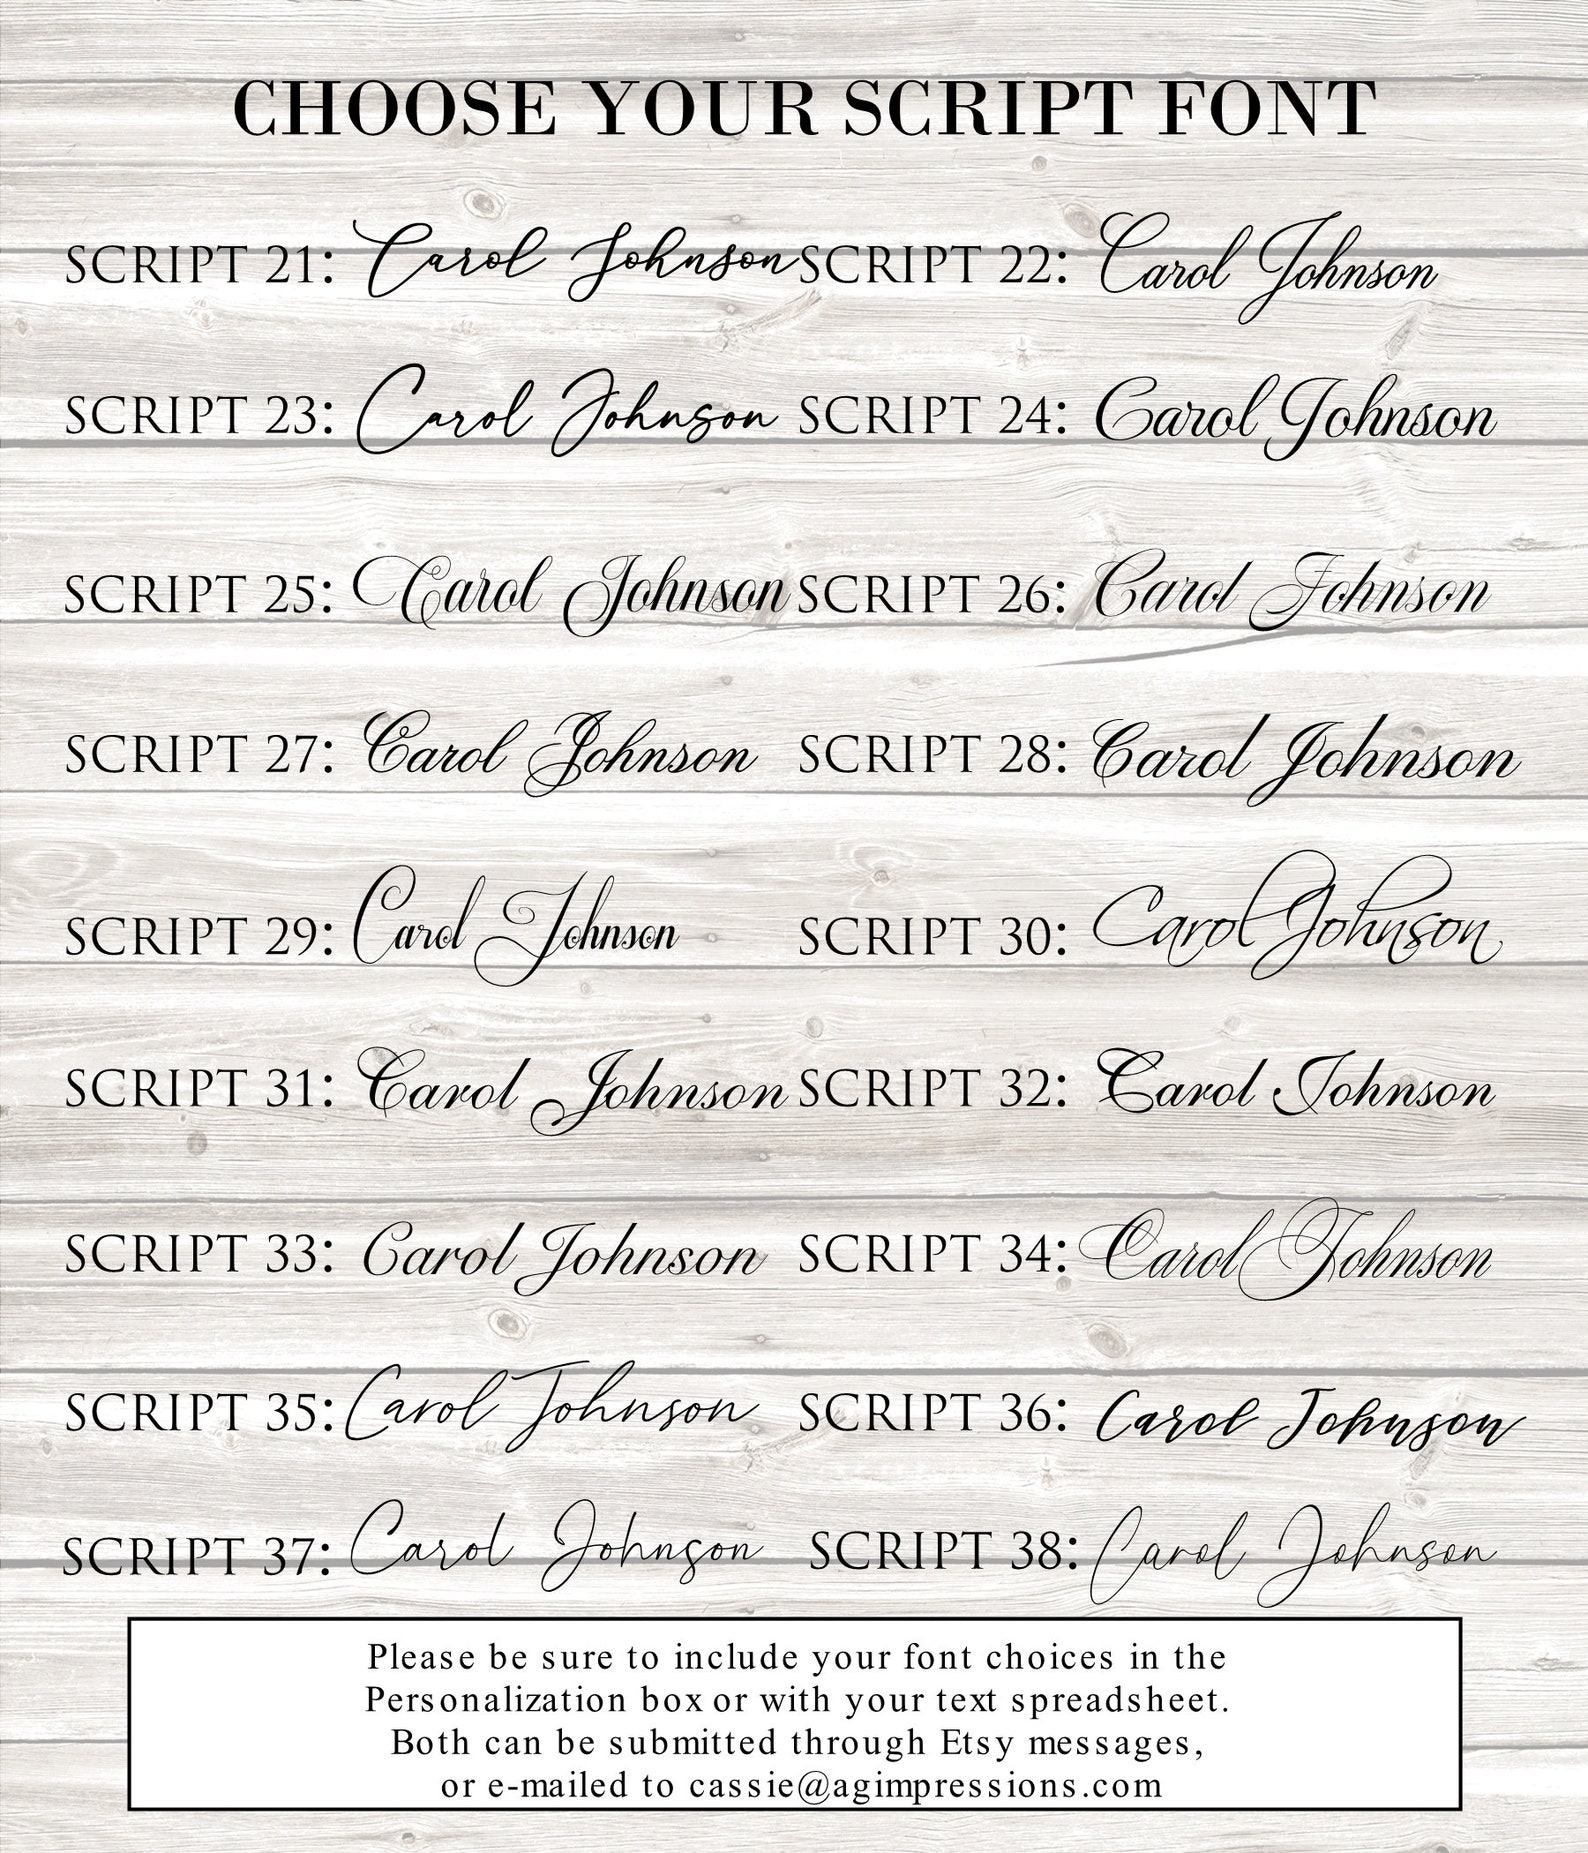 CHOOSE YOUR SCRIPT FONT
SCRIPT 21: Carol Johnson SCRIPT 22: Carol Johnson
SCRIPT 23: Carol Johnson SCRIPT 24: Carol Johnson
SCRIPT 25: Carol Johnson SCRIPT 26: Carol Johnson
SCRIPT 27: Carol Johnson SCRIPT 28: Carol Johnson
SCRIPT 29: Carol Johnson SCRIPT 30: Carol Johnson
SCRIPT 31: Carol Johnson SCRIPT 32: Carol Johnson
SCRIPT 33: Carol Johnson SCRIPT 34: Carol Johnson
SCRIPT 35: Carol Johnson SCRIPT 36: Carol Johnson
SCRIPT 37: Carol Johnson SCRIPT 38: Carol Johnson
Please be sure to include your font choices in the
Personalization box or with your text spreadsheet.
Both can be submitted through Etsy messages,
or e-mailed to cassie@agimpressions.com